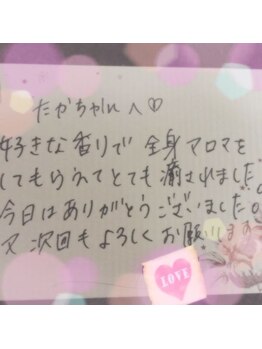 たかちゃんへ♡
好きな香りで全身アロマを
してもらえてとても癒されました。
今日はありがとうございました。
又次回もよろしくお願いします
LOVE